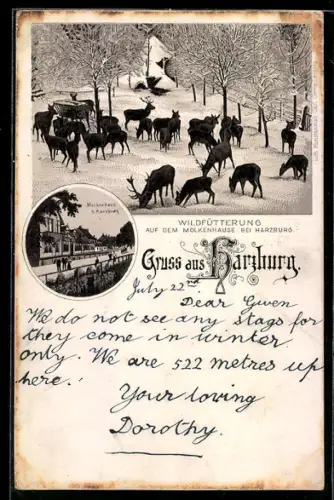 WILDFÜTTERUNG
AUF DEM MOLKENHAUSE BEI HARZBURG.
Molkenhaus
b. Harzburg
Gruss aus Harzburg.
July 22nd
Dear Gwen
We do not see any stags for
they come in winter
only. We are 522 metres up
here.
Your loving
Dorothy.